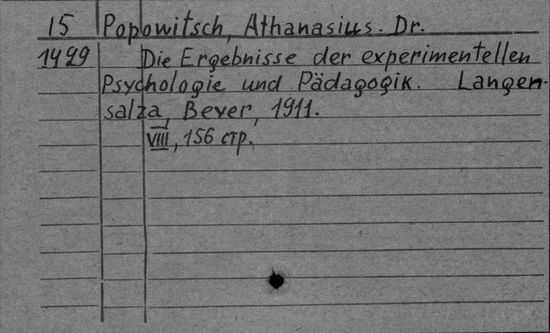 15 Popowitsch, Athanasius. Dr.
1429 Die Ergebnisse der experimentellen
Psychologie und Pädagogik. Langen-
salza, Beyer, 1911.
VIII, 156 стр.